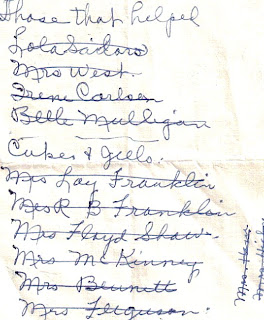 Those that helped
Lola Sadoro
Mrs West.
Irene Carlsen
Belle Mulligan
Cakes & Gells.
Mrs Lay Franklin
Mrs R B Franklin
Mrs Floyd Shaw
Mrs McKinney
Mrs Bennett
Mrs Ferguson.
Mrs
Mrs